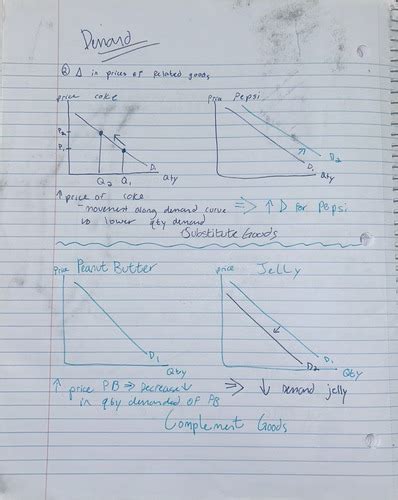 Demand
② Δ in prices of Related goods
price coke
Price Pepsi
P2
P1
D1
Q2 Q1 Qty
D2
D1
Qty
↑ price of coke
-movement along demand curve ⇒ ↑ D for Pepsi
lower qty demand
Substitute Goods
Price Peanut Butter
price Jelly
D1
Qty
D2 D1
Qty
↑ price PB ⇒ Decrease ⇒ ↓ Demand jelly
in qty demanded of PB
Complement Goods